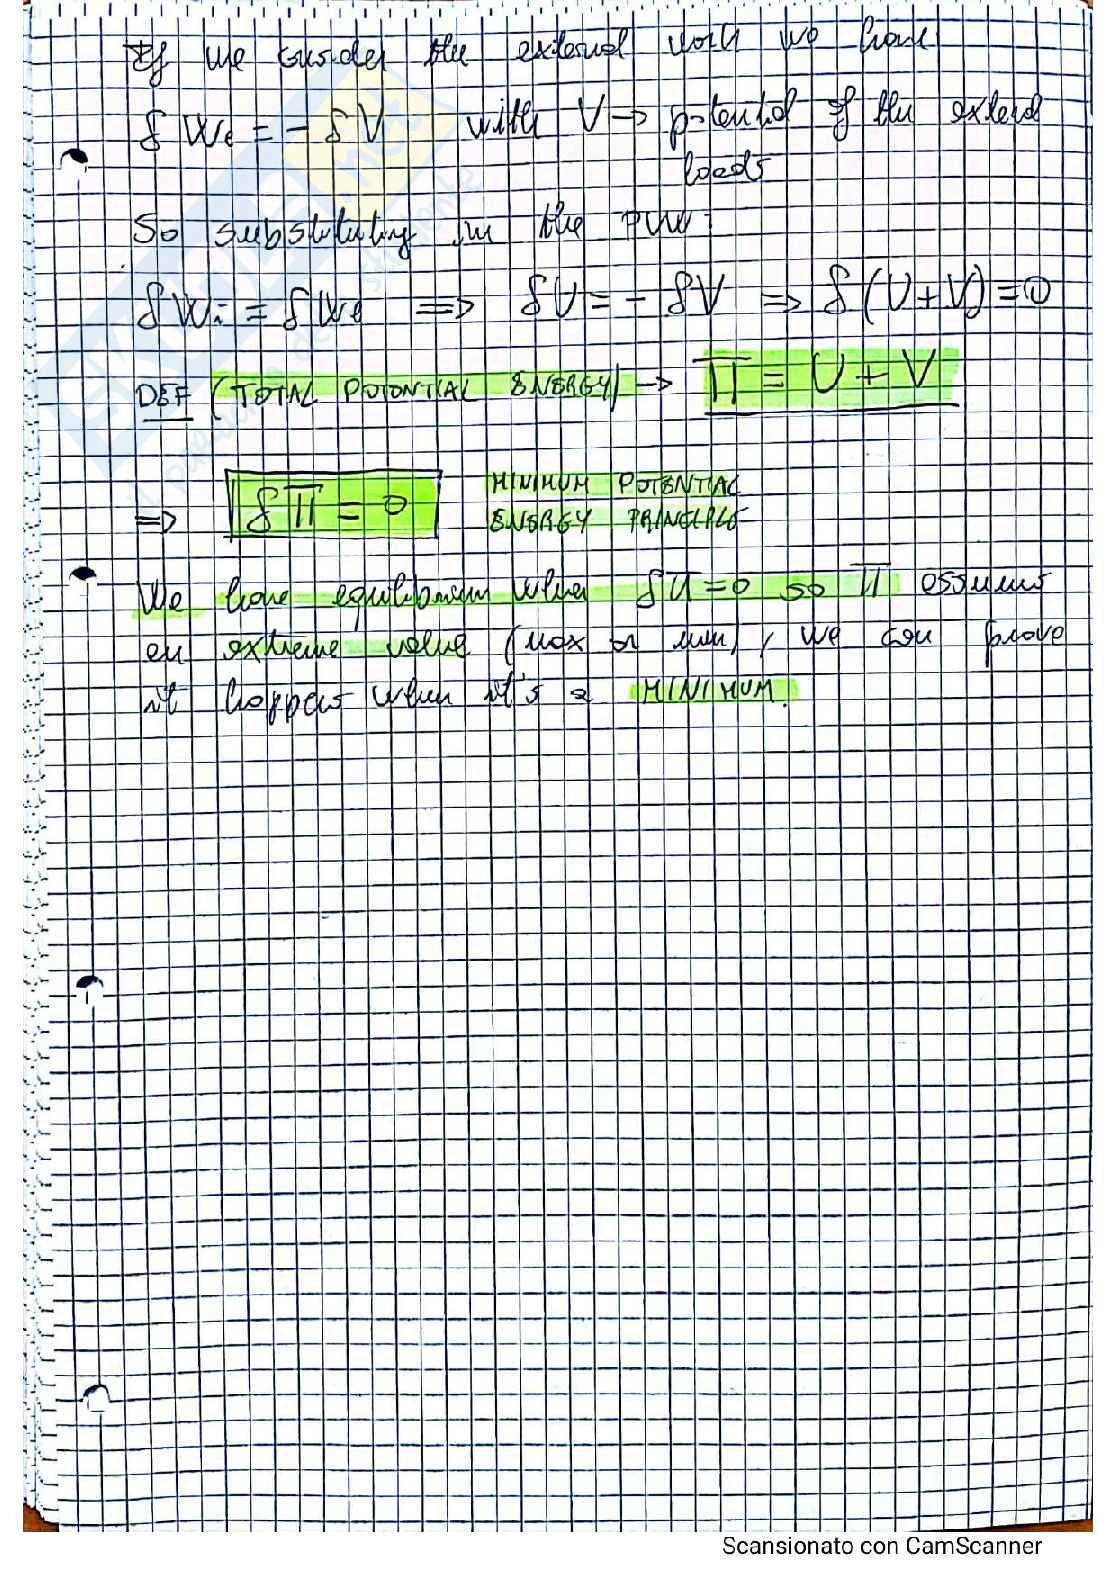 If we consider the external work we have
δWe = - δV with V → potential of the external
loads
So substituting in the PVW:
δWi = δWe ⟹ δU = - δV ⟹ δ(U+V)=0
DEF (TOTAL POTENTIAL ENERGY) → Π = U + V
⟹ δΠ = 0 MINIMUM POTENTIAL
ENERGY PRINCIPLE
We have equilibrium when δΠ=0 so Π assumes
an extreme value (max or min), we can prove
it happens when it's a MINIMUM.
Scansionato con CamScanner